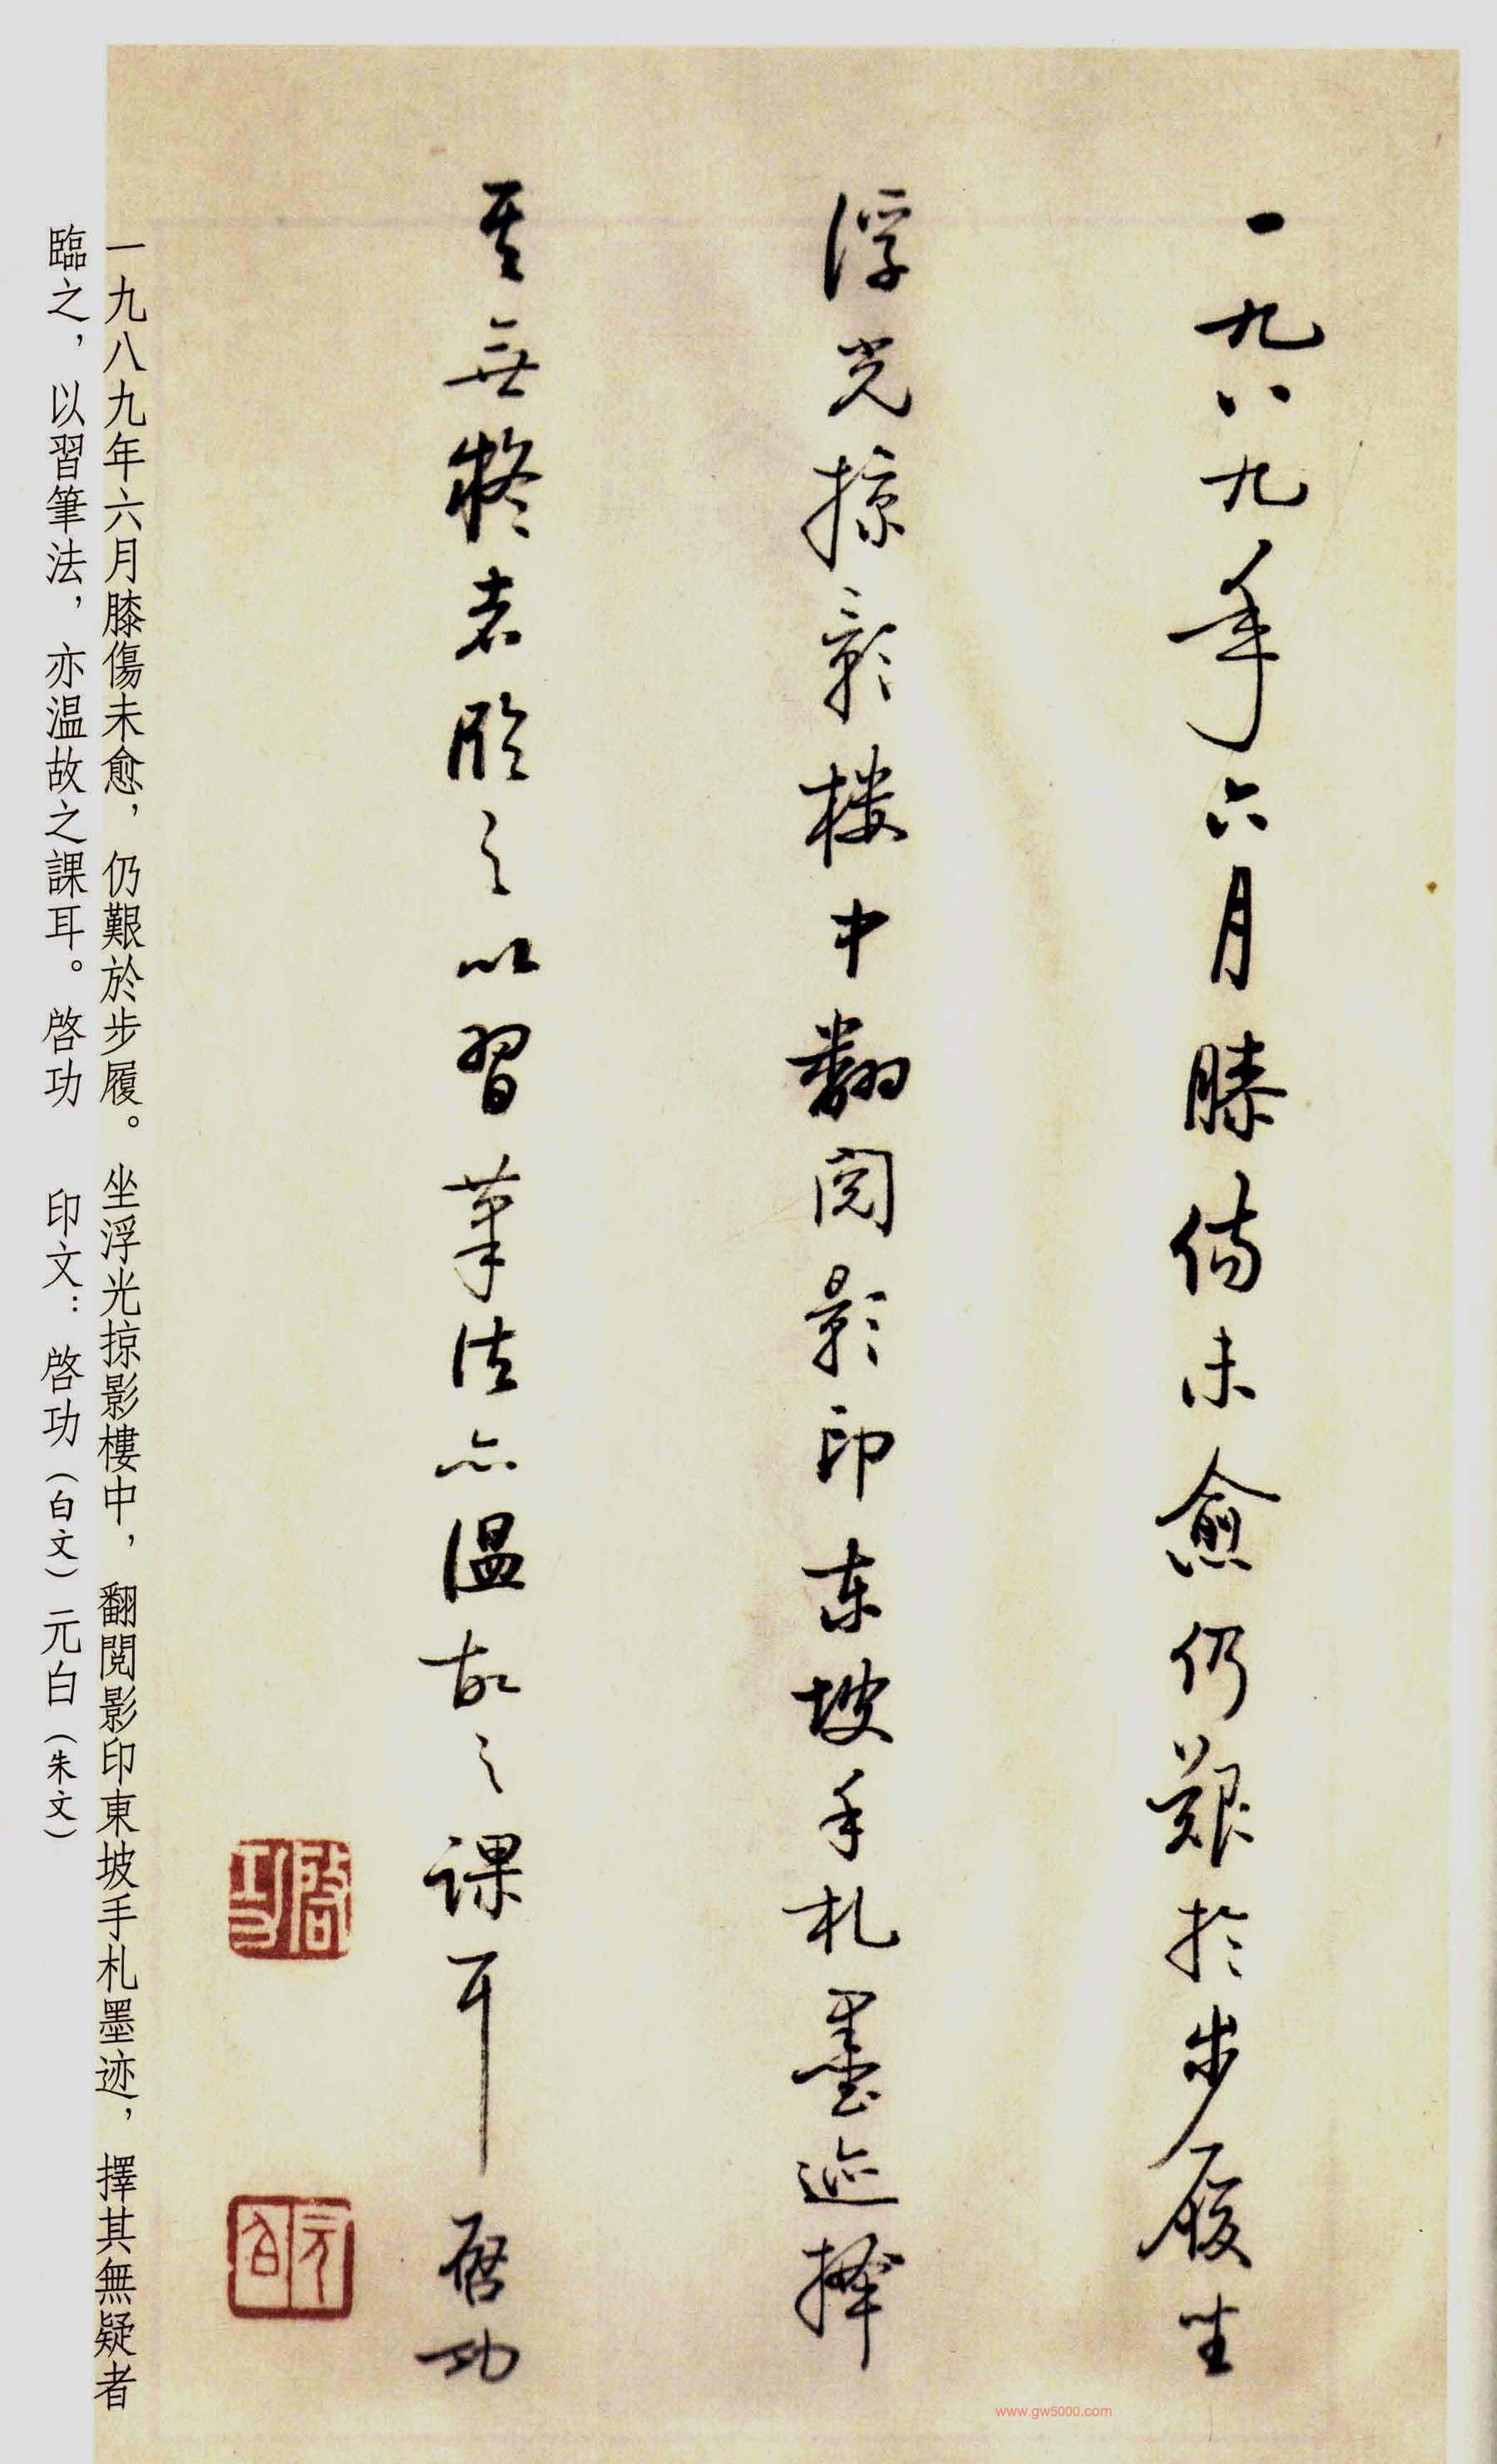 一九八九年六月膝傷未愈仍艱於步履坐
浮光掠影楼中翻閱影印东坡手札墨迹擇
其無疑者临之以習筆法亦温故之課耳 啓功
啓功
元白
一九八九年六月膝傷未愈，仍艱於步履。坐浮光掠影樓中，翻閱影印東坡手札墨迹，擇其無疑者
臨之，以習筆法，亦温故之課耳。 啓功 印文：啓功（白文）元白（朱文）
www.gw5000.com